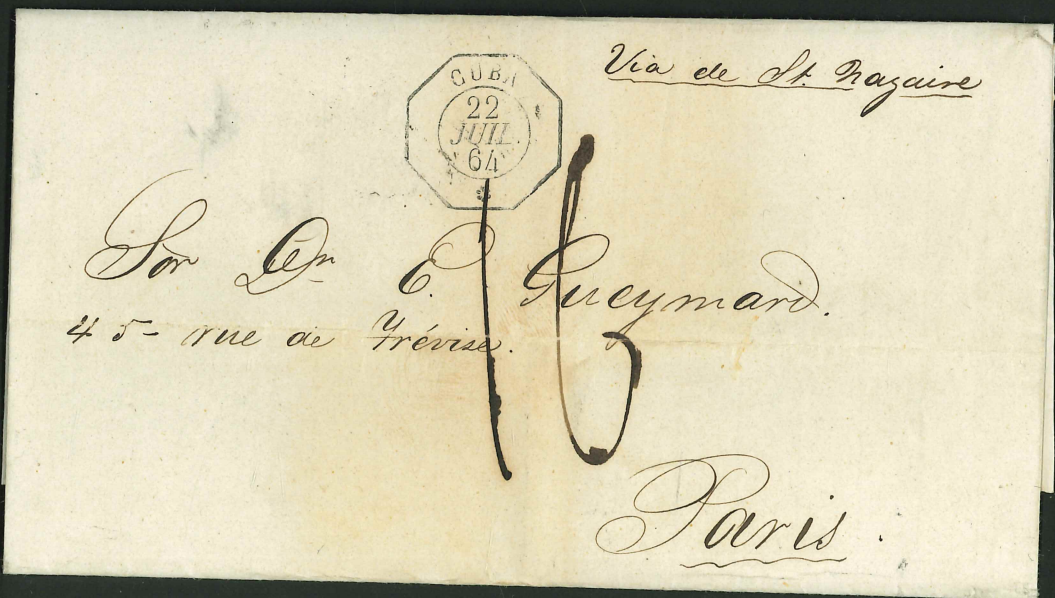 Via de St. Nazaire
CUBA
22
JUIL.
64
16
Sor Dn E. Gueymard.
45- rue de Trévise.
Paris.